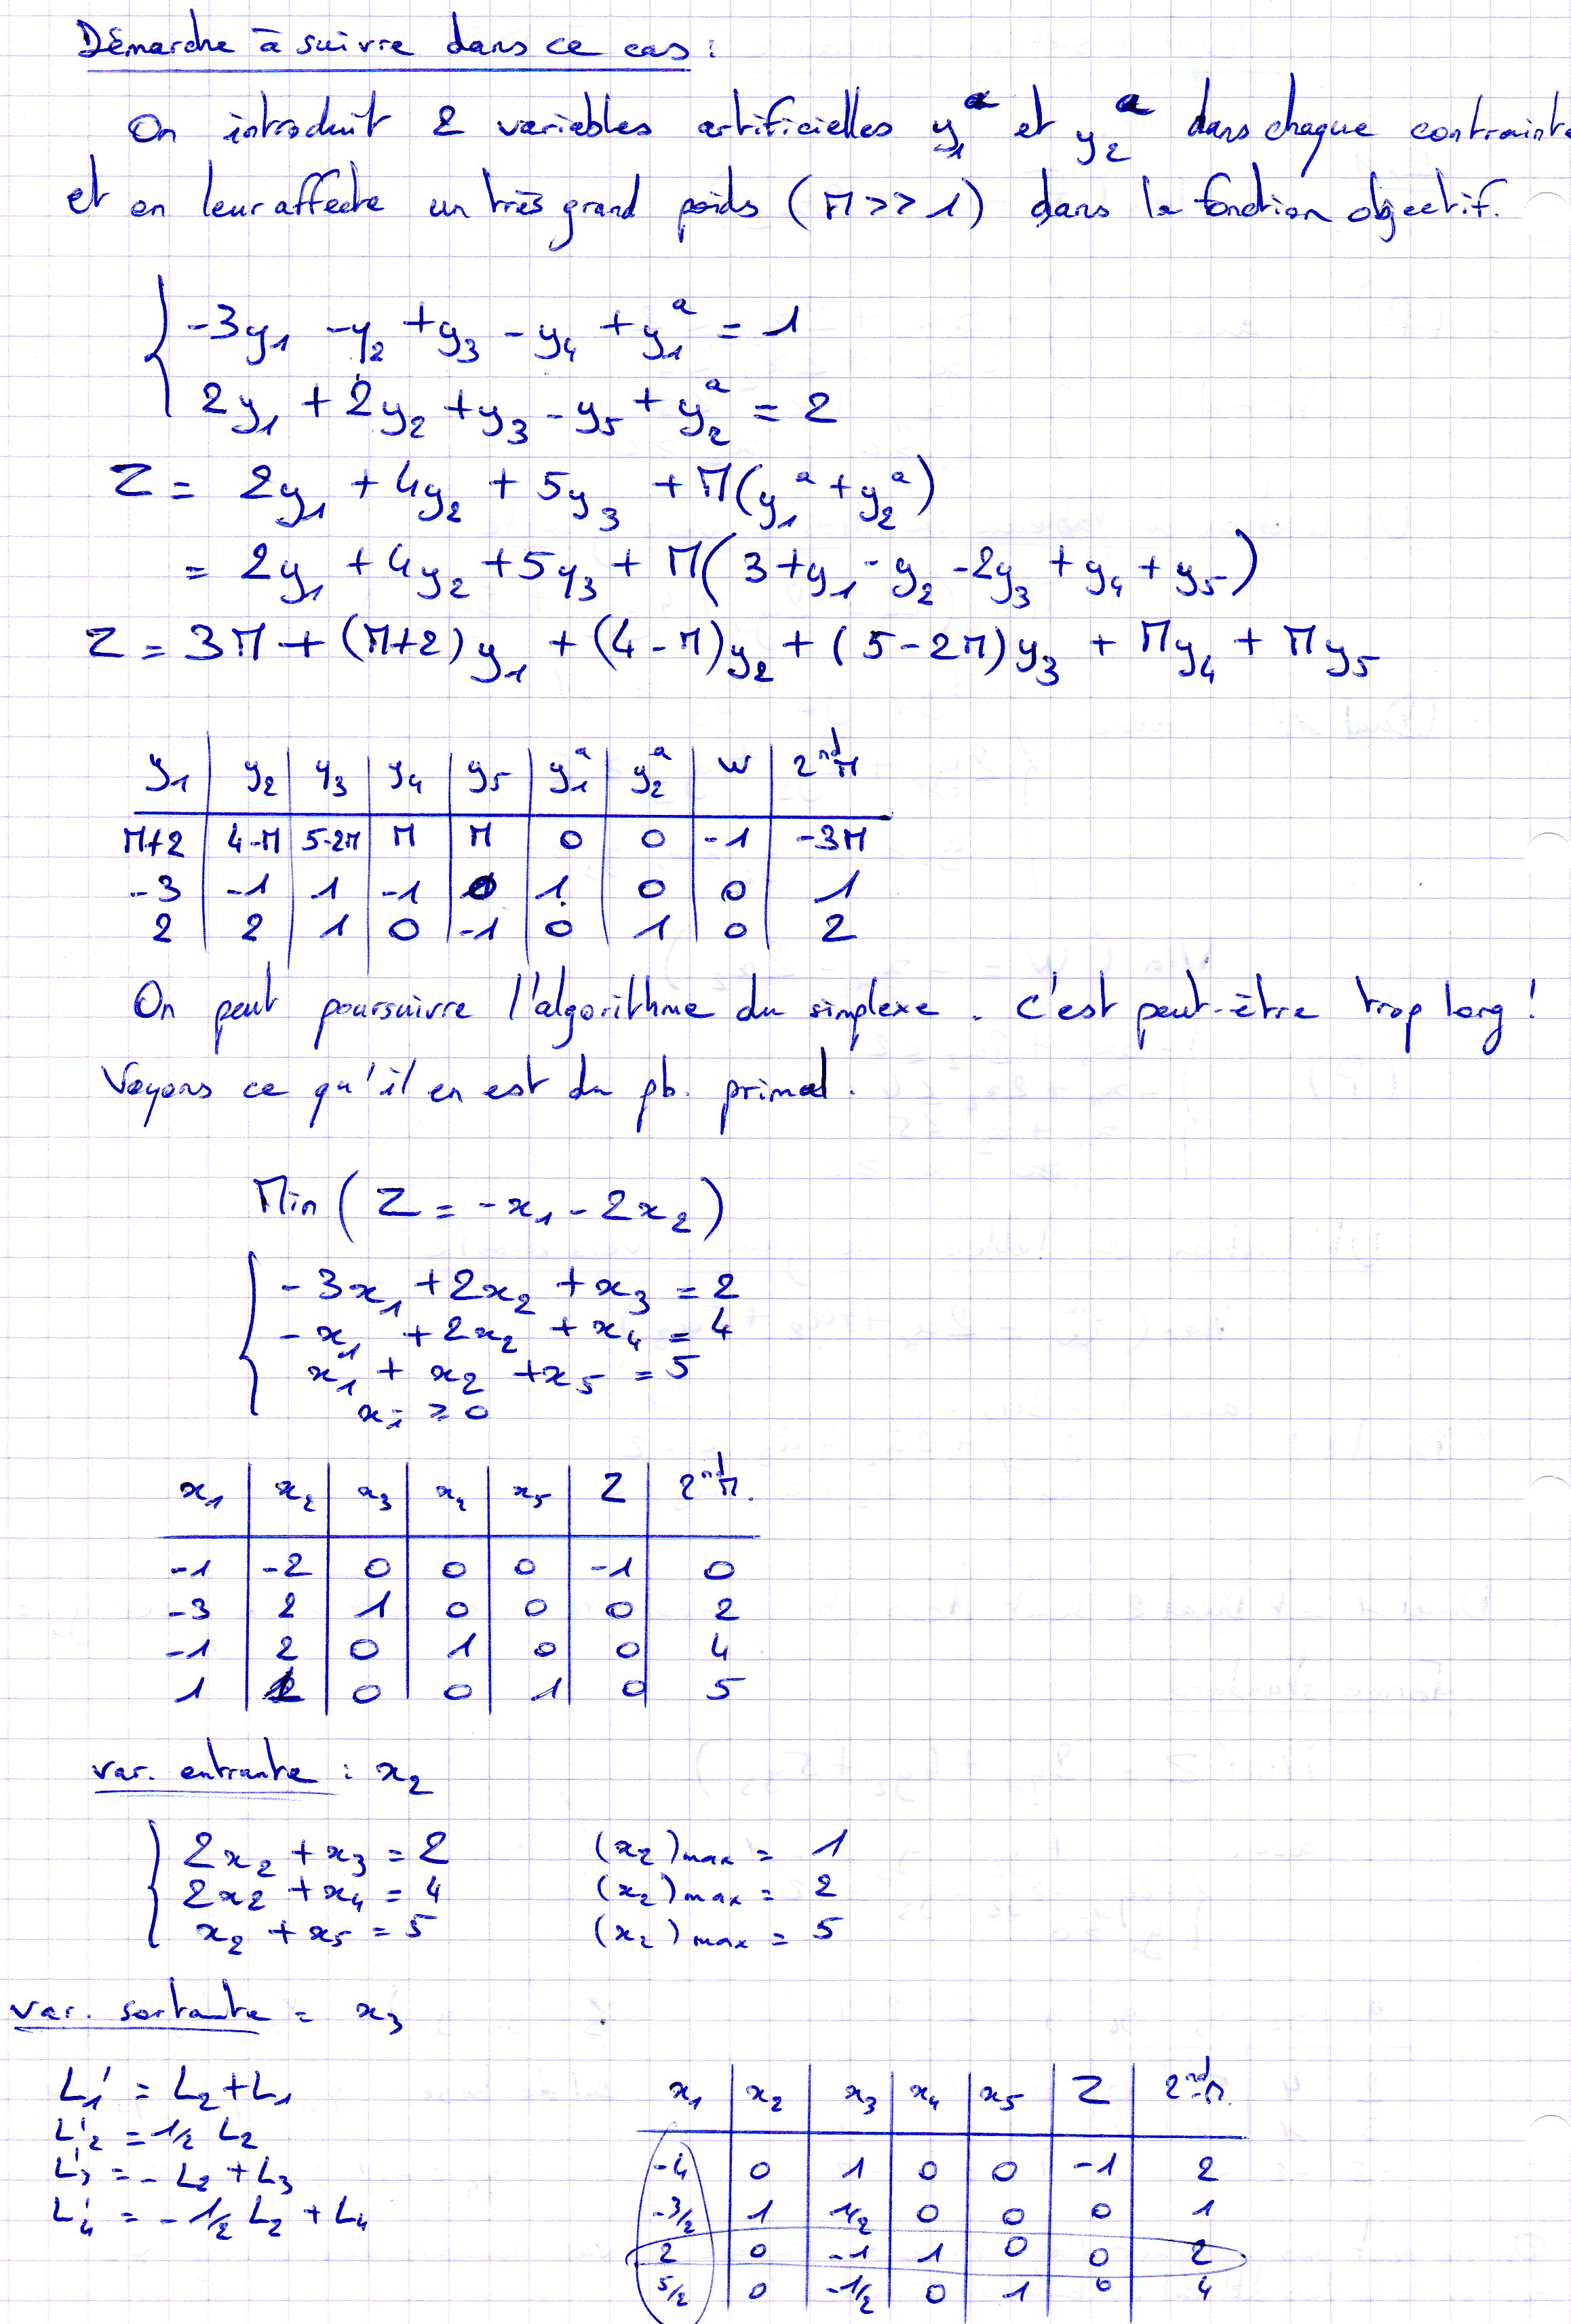 Démarche à suivre dans ce cas :
On introduit 2 variables artificielles y₁ᵃ et y₂ᵃ dans chaque contrainte
et on leur affecte un très grand poids (M >> 1) dans la fonction objectif.
-3y₁ - y₂ + y₃ - y₄ + y₁ᵃ = 1
2y₁ + 2y₂ + y₃ - y₅ + y₂ᵃ = 2
Z = 2y₁ + 4y₂ + 5y₃ + M(y₁ᵃ + y₂ᵃ)
= 2y₁ + 4y₂ + 5y₃ + M(3 + y₁ - y₂ - 2y₃ + y₄ + y₅)
Z = 3M + (M+2)y₁ + (4-M)y₂ + (5-2M)y₃ + My₄ + My₅
y₁ | y₂ | y₃ | y₄ | y₅ | y₁ᵃ | y₂ᵃ | w | 2ⁿᵈ M
M+2 | 4-M | 5-2M | M | M | 0 | 0 | -1 | -3M
-3 | -1 | 1 | -1 | 0 | 1 | 0 | 0 | 1
2 | 2 | 1 | 0 | -1 | 0 | 1 | 0 | 2
On peut poursuivre l'algorithme du simplexe. C'est peut-être trop long !
Voyons ce qu'il en est du pb. primal.
Min (Z = -x₁ - 2x₂)
-3x₁ + 2x₂ + x₃ = 2
-x₁ + 2x₂ + x₄ = 4
x₁ + x₂ + x₅ = 5
xᵢ ≥ 0
x₁ | x₂ | x₃ | x₄ | x₅ | Z | 2ⁿᵈ M.
-1 | -2 | 0 | 0 | 0 | -1 | 0
-3 | 2 | 1 | 0 | 0 | 0 | 2
-1 | 2 | 0 | 1 | 0 | 0 | 4
1 | 1 | 0 | 0 | 1 | 0 | 5
var. entrante : x₂
2x₂ + x₃ = 2 (x₂)max = 1
2x₂ + x₄ = 4 (x₂)max = 2
x₂ + x₅ = 5 (x₂)max = 5
var. sortante = x₃
L₁' = L₂ + L₁
L₂' = 1/2 L₂
L₃' = - L₂ + L₃
L₄' = - 1/2 L₂ + L₄
x₁ | x₂ | x₃ | x₄ | x₅ | Z | 2ⁿᵈ M.
-4 | 0 | 1 | 0 | 0 | -1 | 2
-3/2 | 1 | 1/2 | 0 | 0 | 0 | 1
2 | 0 | -1 | 1 | 0 | 0 | 2
5/2 | 0 | -1/2 | 0 | 1 | 0 | 4